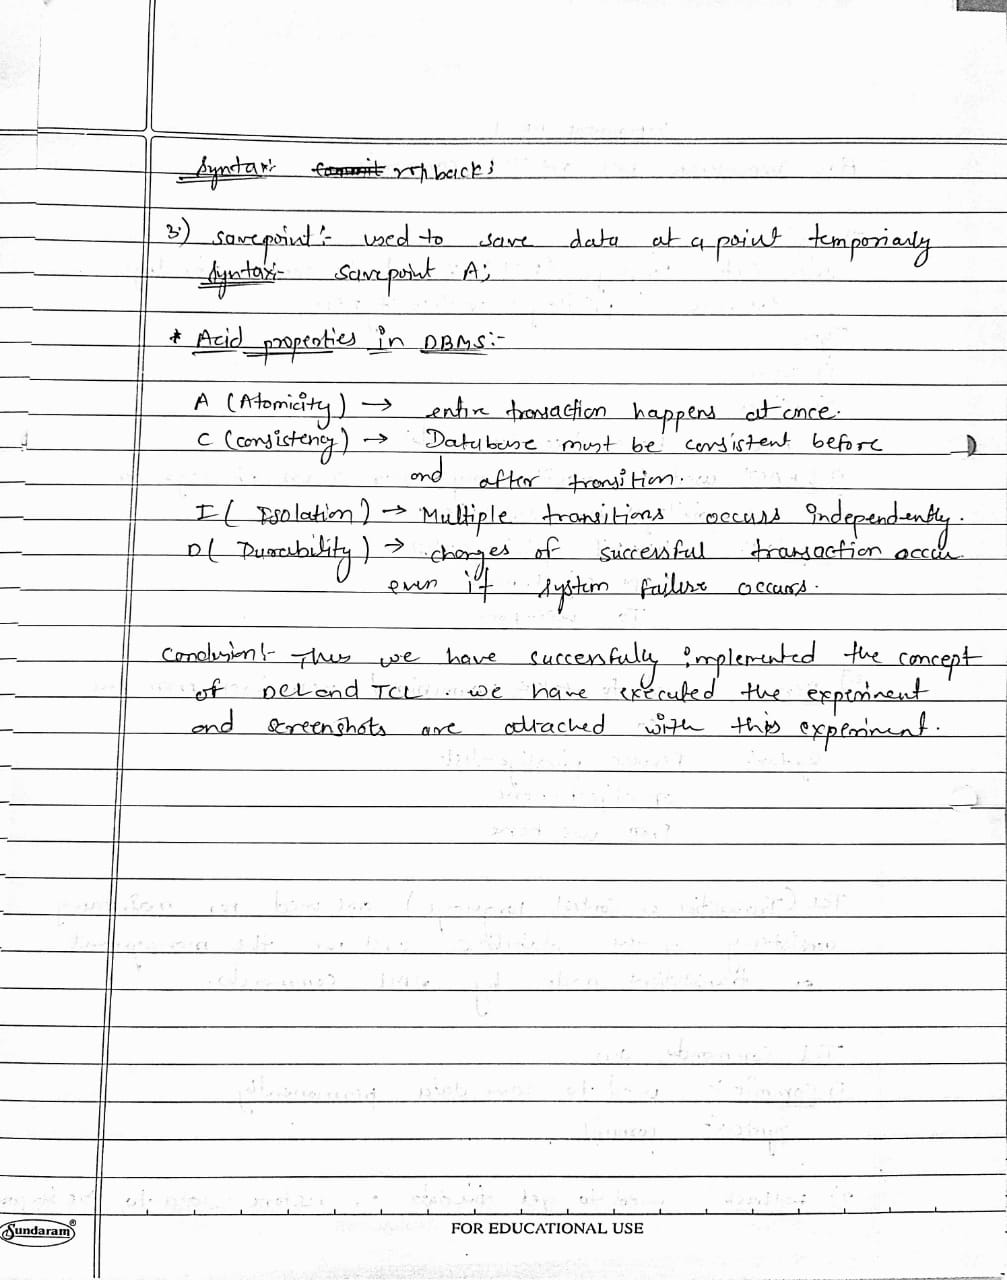 Syntax:- commit rollback;
3) savepoint :- used to save data at a point temporarily
Syntax:- Savepoint A;
* Acid properties in DBMS:-
A (Atomicity) → entire transaction happens at once.
C (consistency) → Database must be consistent before
and after transition.
I ( Isolation) → Multiple transitions occurs independently.
D ( Durability) → changes of successful transaction occur
even if system failure occurs.
Conclusion:- Thus we have successfully implemented the concept
of DCL and TCL. we have executed the experiment
and screenshots are attached with this experiment.
Sundaram®
FOR EDUCATIONAL USE